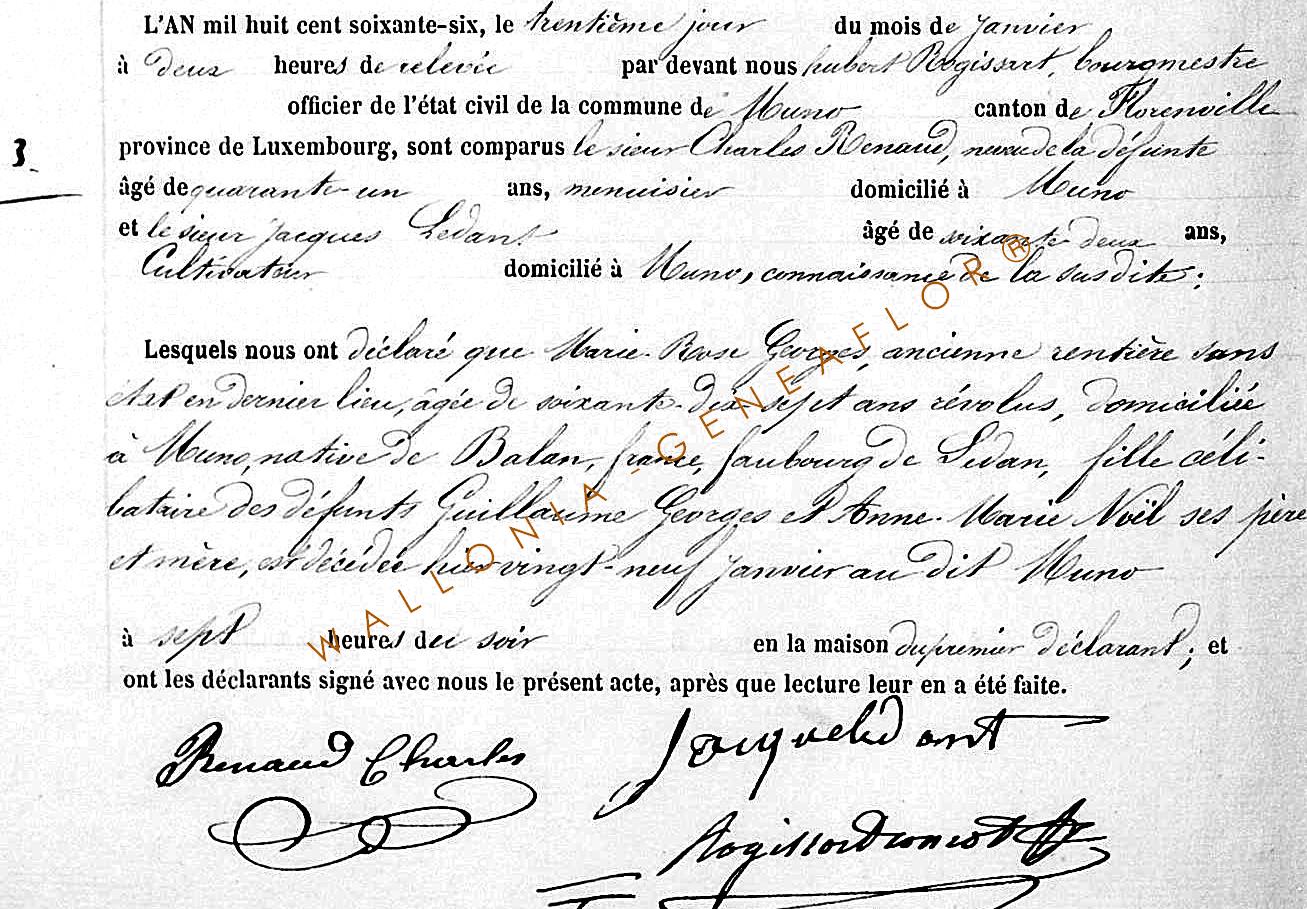 L'AN mil huit cent soixante-six, le trentième jour du mois de Janvier
à deux heures de relevée par devant nous hubert Rogissart, bourgmestre
officier de l'état civil de la commune de Muno canton de Florenville
3.
province de Luxembourg, sont comparus le sieur Charles Renaud, neveu de la défunte
âgé de quarante-un ans, menuisier domicilié à Muno
et le sieur Jacques Ledant âgé de soixante deux ans,
Cultivateur domicilié à Muno, connaissance de la susdite ;
Lesquels nous ont déclaré que Marie-Rose Georges, ancienne rentière sans
état en dernier lieu, âgée de soixante-dix-sept ans révolus, domiciliée
à Muno, native de Balan, france, faubourg de Sedan, fille céli-
bataire des défunts Guillaume Georges et Anne-Marie Noël ses père
et mère, est décédée hier vingt-neuf Janvier au dit Muno
à sept heures du soir en la maison du premier déclarant ; et
ont les déclarants signé avec nous le présent acte, après que lecture leur en a été faite.
Renaud Charles
WALLONIA-GENEAFLOR®